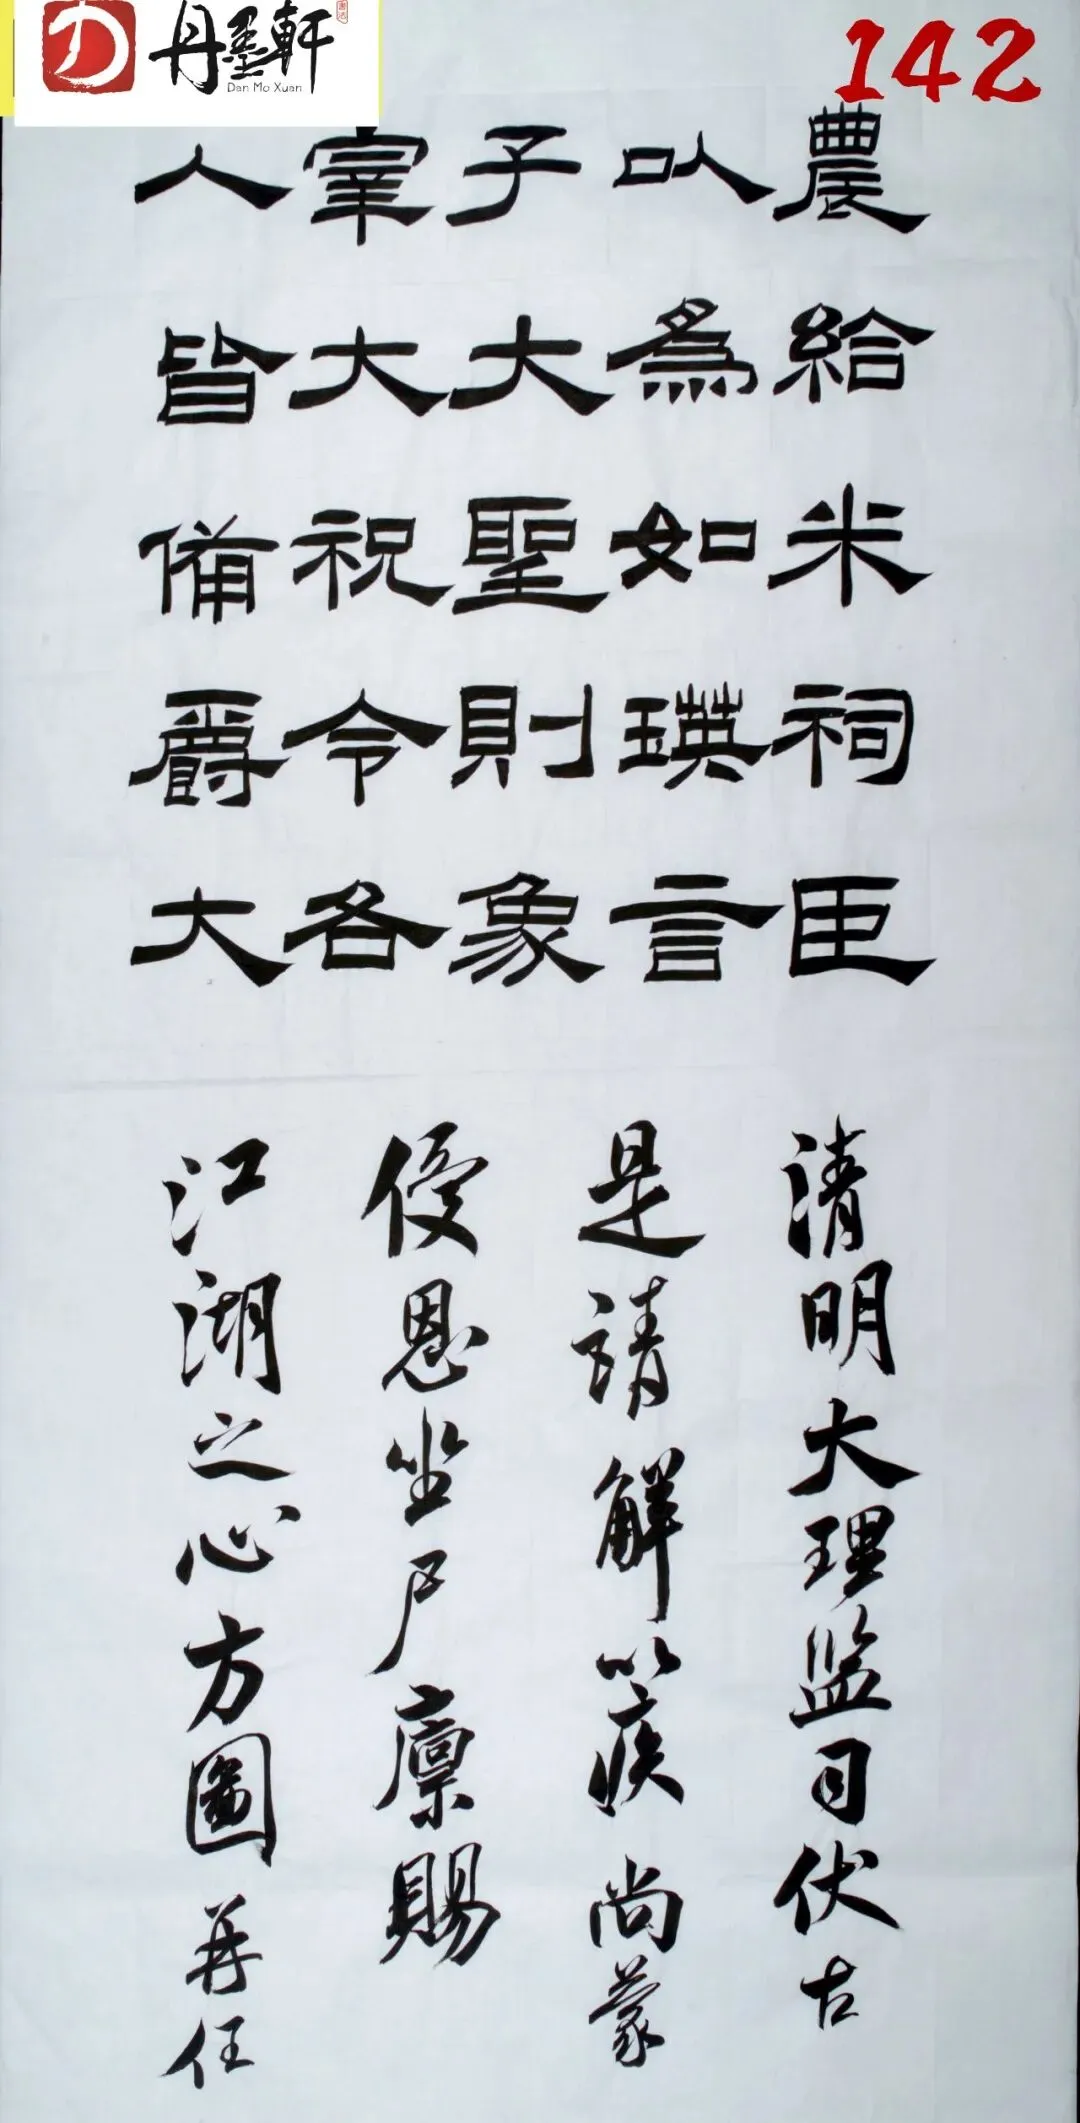 丹墨軒
Dan Mo Xuan
142
農給米祠臣
以為如瑛言
子大聖則象
宰大祝令各
人皆備爵大
清明大理监司伏古
是請解以疾尚蒙
優恩坐尸廩賜
江湖之心方圖再任